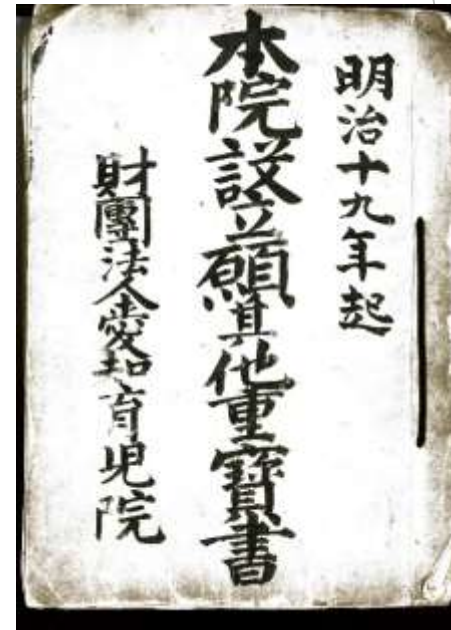 明治十九年起
本院設立願其他重寳書
財團法人愛知育児院